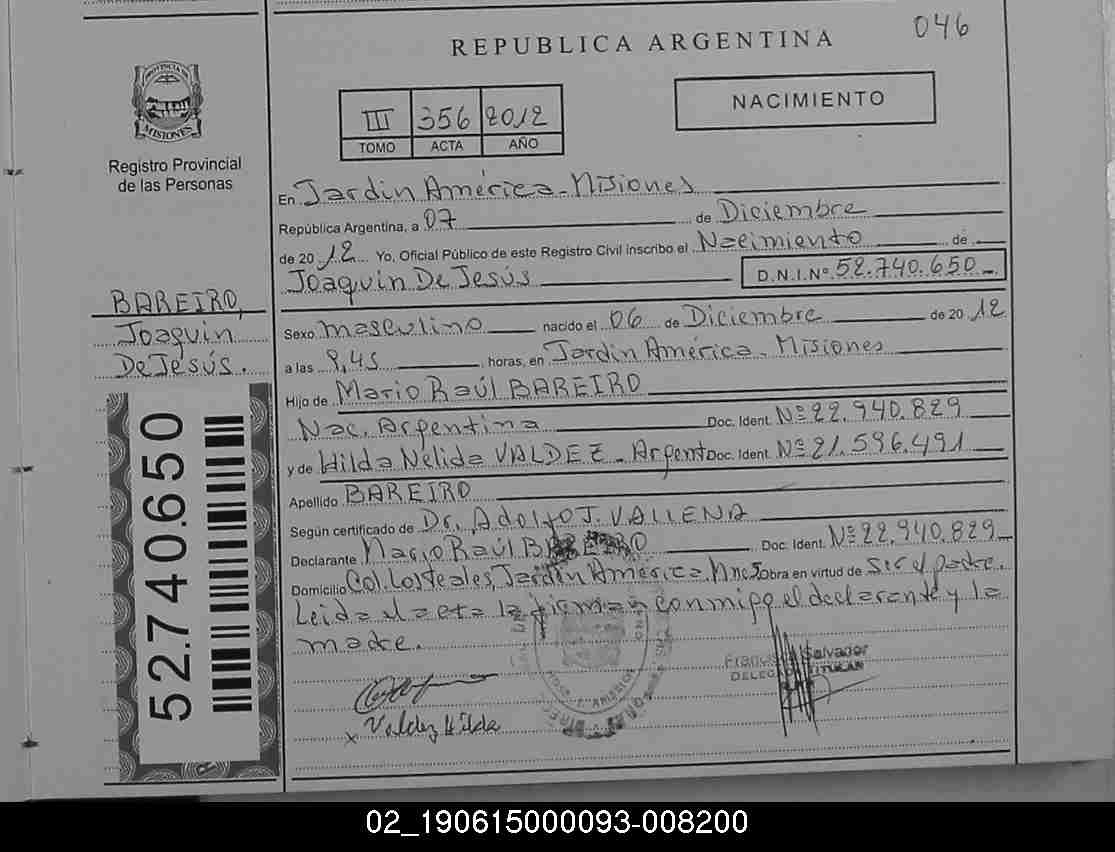 046
REPUBLICA ARGENTINA
PROVINCIA DE
MISIONES
Registro Provincial
de las Personas
III 356 2012
TOMO ACTA AÑO
NACIMIENTO
En Jardin América - Misiones
República Argentina, a 07 de Diciembre
de 20 12 Yo, Oficial Público de este Registro Civil inscribo el Nacimiento de
Joaquin De Jesús D.N.I.Nº 52.740.650
BAREIRO,
Joaquin
De Jesús.
52.740.650
Sexo masculino nacido el 06 de Diciembre de 20 12
a las 9,45 horas, en Jardin América - Misiones
Hijo de Mario Raúl BAREIRO
Nac. Argentina Doc. Ident. Nº 22.940.829
y de Hilda Nelida VALDEZ - Argent Doc. Ident. Nº 21.596.491
Apellido BAREIRO
Según certificado de Dr. Adolfo J. VALLENA
Declarante Mario Raúl BAREIRO Doc. Ident. Nº 22.940.829
Domicilio Col. Los Teales, Jardin América, Mnes Obra en virtud de ser el padre.
Leida el acta la firman conmigo el declarante y la
madre.
Salvador
TITULAR
x Valdez Hilda
02_190615000093-008200